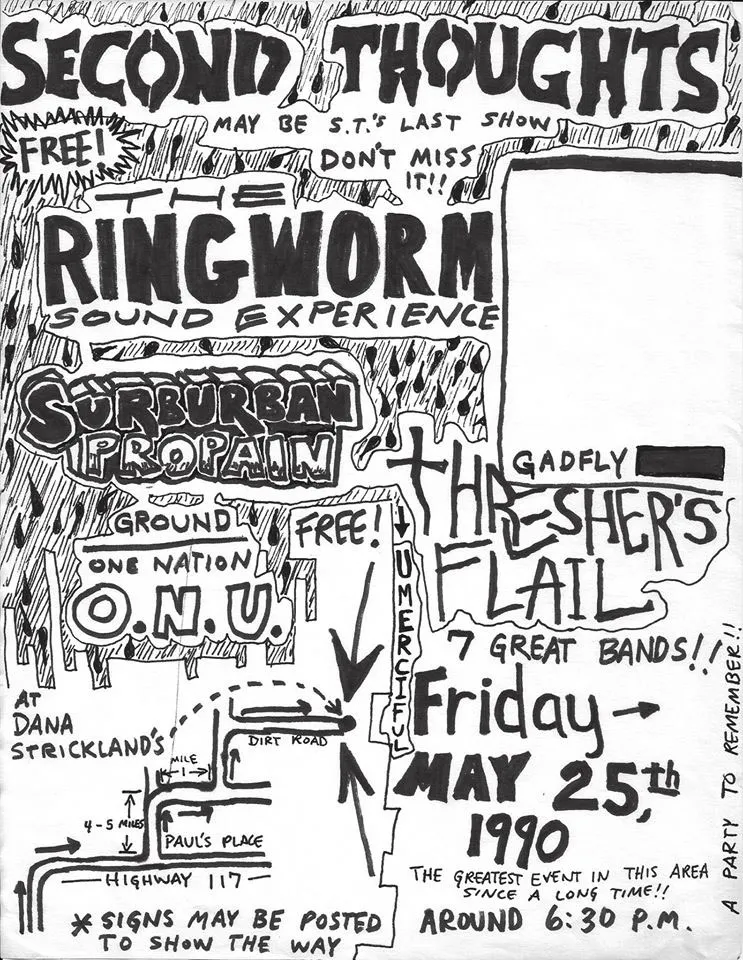 SECOND THOUGHTS
MAY BE S.T.'s LAST SHOW
DON'T MISS
IT!!
FREE!
THE
RINGWORM
SOUND EXPERIENCE
SURBURBAN
PROPAIN
GADFLY
THRESHER'S
FLAIL
GROUND
ONE NATION
O.N.U.
FREE!
UMERCIFUL
7 GREAT BANDS!!
Friday
MAY 25th,
1990
THE GREATEST EVENT IN THIS AREA
SINCE A LONG TIME!!
AROUND 6:30 P.M.
A PARTY TO REMEMBER!!
AT
DANA
STRICKLAND'S
DIRT ROAD
MILE
1
4-5 MILES
PAUL'S PLACE
HIGHWAY 117
* SIGNS MAY BE POSTED
TO SHOW THE WAY